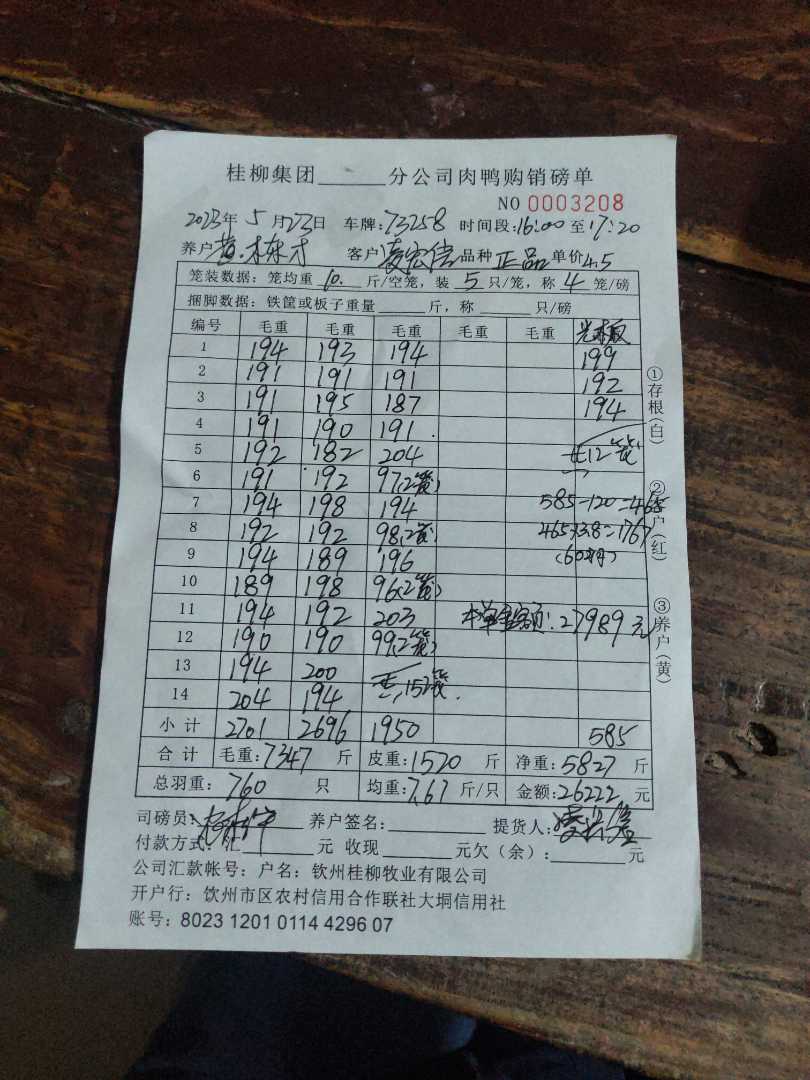 桂柳集团______分公司肉鸭购销磅单
NO 0003208
2023年5月23日 车牌:73258 时间段:16:00至17:20
养户 黄 栋才 客户 品种 正品 单价4.5
笼装数据:笼均重 10. 斤/空笼,装 5 只/笼,称 4 笼/磅
捆脚数据:铁筐或板子重量______斤,称______只/磅
编号 毛重 毛重 毛重 毛重 毛重 光板
1 194 193 194 199
2 191 191 191 192
3 191 195 187 194
4 191 190 191
5 192 182 204 12笼
6 191 192 97(2笼)
7 194 198 194 585-120=465
8 192 192 98(2笼) 465×3.8=1767
9 194 189 196 (60羽)
10 189 198 96(2笼)
11 194 192 203 本单金额:27989元
12 190 190 99(2笼)
13 194 200 152笼
14 204 194
小计 2701 2696 1950 585
合计 毛重:7347 斤 皮重:1520 斤 净重:5827 斤
总羽重:760 只 均重:7.67 斤/只 金额:26222 元
司磅员: 养户签名:______ 提货人:
付款方式:汇______元 收现______元欠(余):______元
公司汇款帐号:户名:钦州桂柳牧业有限公司
开户行:钦州市区农村信用合作联社大垌信用社
账号:8023 1201 0114 4296 07
①存根(白)
②户(红)
③养户(黄)